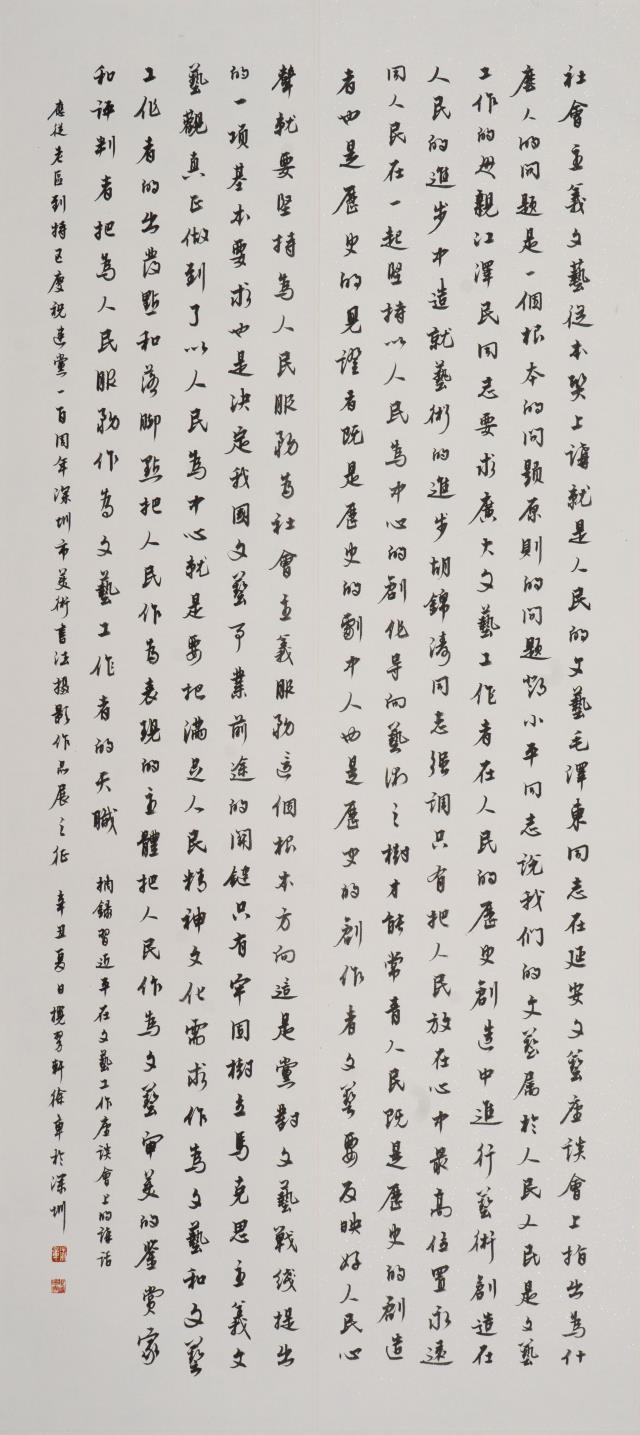 社會主義文藝從本質上講就是人民的文藝毛澤東同志在延安文藝座談會上指出為什
麼人的问題是一個根本的问题原則的问題鄧小平同志説我们的文藝属於人民人民是文藝
工作的母親江澤民同志要求廣大文藝工作者在人民的歷史創造中進行藝術創造在
人民的進步中造就藝術的進步胡錦濤同志强調只有把人民放在心中最高位置永遠
同人民在一起堅持以人民為中心的創作导向藝術之樹才能常青人民既是歷史的創造
者也是歷史的見證者既是歷史的劇中人也是歷史的創作者文藝要反映好人民心
聲就要堅持為人民服務為社會主義服務這個根本方向這是黨對文藝戰线提出
的一項基本要求也是决定我國文藝事業前途的関鍵只有牢固樹立馬克思主義文
藝觀真正做到了以人民為中心就是要把滿足人民精神文化需求作為文藝和文藝
工作者的出發點和落脚點把人民作為表現的主體把人民作為文藝审美的鉴賞家
和評判者把為人民服務作為文藝工作者的天職
摘録習近平在文藝工作座談會上的講話
應從老區到特区慶祝建黨一百周年深圳市美術書法摄影作品展之征 辛丑夏日攬翠軒徐章於深圳